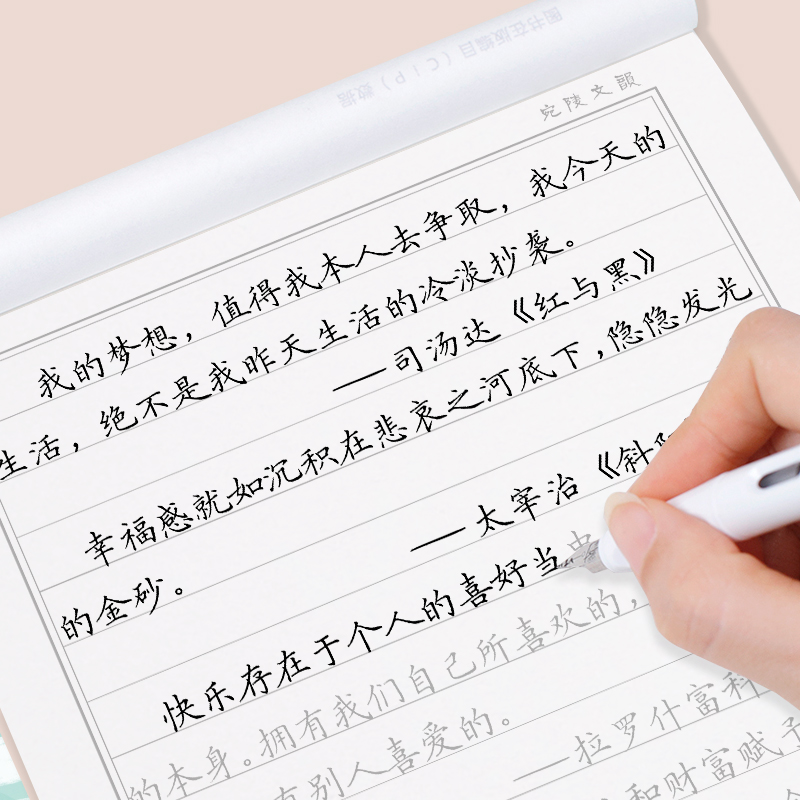 图书在版编目（CIP）数据
宛陵文韻
我的梦想，值得我本人去争取，我今天的
生活，绝不是我昨天生活的冷淡抄袭。
——司汤达《红与黑》
幸福感就如沉积在悲哀之河底下，隐隐发光
的金砂。
——太宰治《斜
快乐存在于个人的喜好当中
的本身。拥有我们自己所喜欢的，
别人喜爱的。
——拉罗什富科
和财富赋予